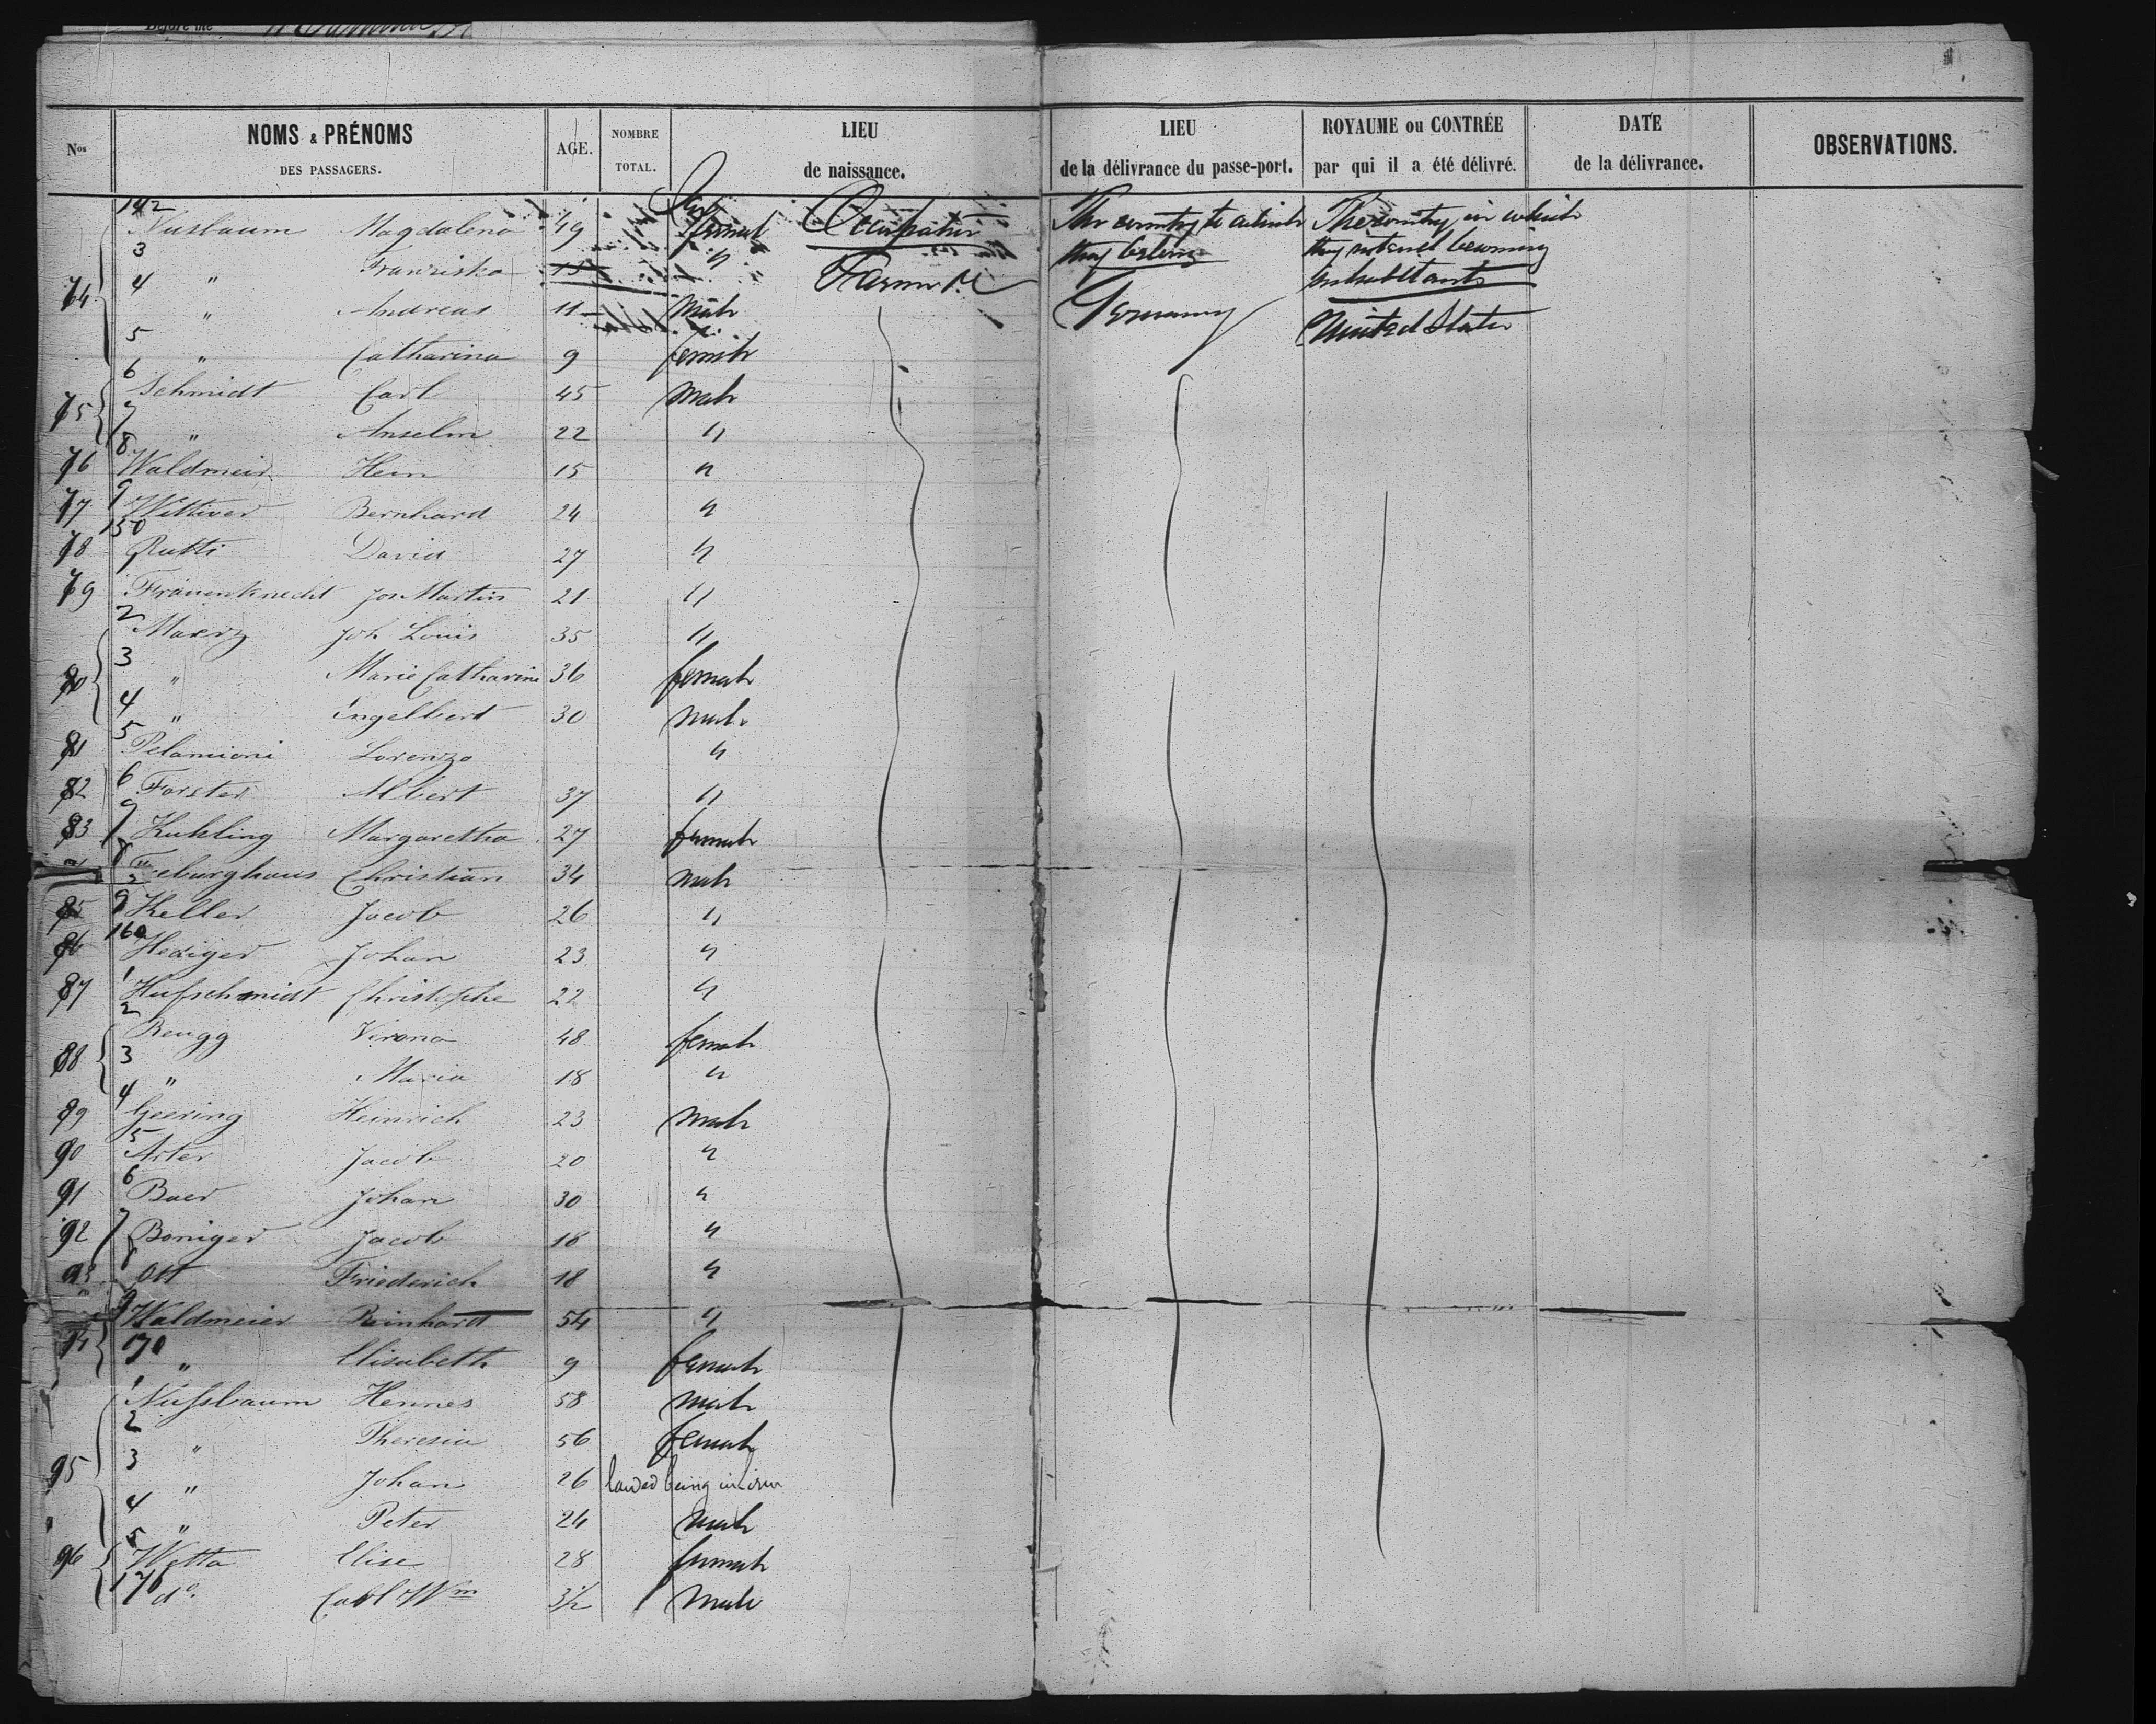 Before the
Nos NOMS & PRÉNOMS DES PASSAGERS. AGE. NOMBRE TOTAL. LIEU de naissance. LIEU de la délivrance du passe-port. ROYAUME ou CONTRÉE par qui il a été délivré. DATE de la délivrance. OBSERVATIONS.
Sex Occupation The country to which they belong The country in which they intend becoming inhabitants
Farmer Germany United States
74 142 Nusbaum Magdalena 49 female
3 " Franziska 15 "
4 " Andreas 11 male
5 " Catharina 9 female
75 6 Schmidt Carl 45 male
7 " Anselm 22 "
76 8 Waldmeir Hein 15 "
77 9 Wittwer Bernhard 24 "
78 150 Rutti David 27 "
79 Frauenknecht Jos Martin 21 "
80 2 Maerz Joh Louis 35 "
3 " Marie Catharine 36 female
4 " Engelbert 30 male
81 5 Pelamioni Lorenzo "
82 6 Forster Albert 37 "
83 7 Kuhling Margaretha 27 female
8 Freeburghaus Christian 34 male
85 9 Keller Jacob 26 "
86 160 Hediger Johan 23 "
87 1 Hufschmidt Christophe 22 "
88 2 Rengg Verona 48 female
3 " Maria 18 "
89 4 Geering Heinrich 23 male
90 5 Arter Jacob 20 "
91 6 Baer Johan 30 "
92 7 Boniger Jacob 18 "
93 8 Ott Friederich 18 "
94 9 Waldmeier Reinhardt 54 "
170 " Elisabeth 9 female
95 1 Nussbaum Hennes 58 male
2 " Theresia 56 female
3 " Johan 26 landed being
4 " Peter 24 male
96 5 Wetta Elise 28 female
176 do. Carl Wm 3½ male